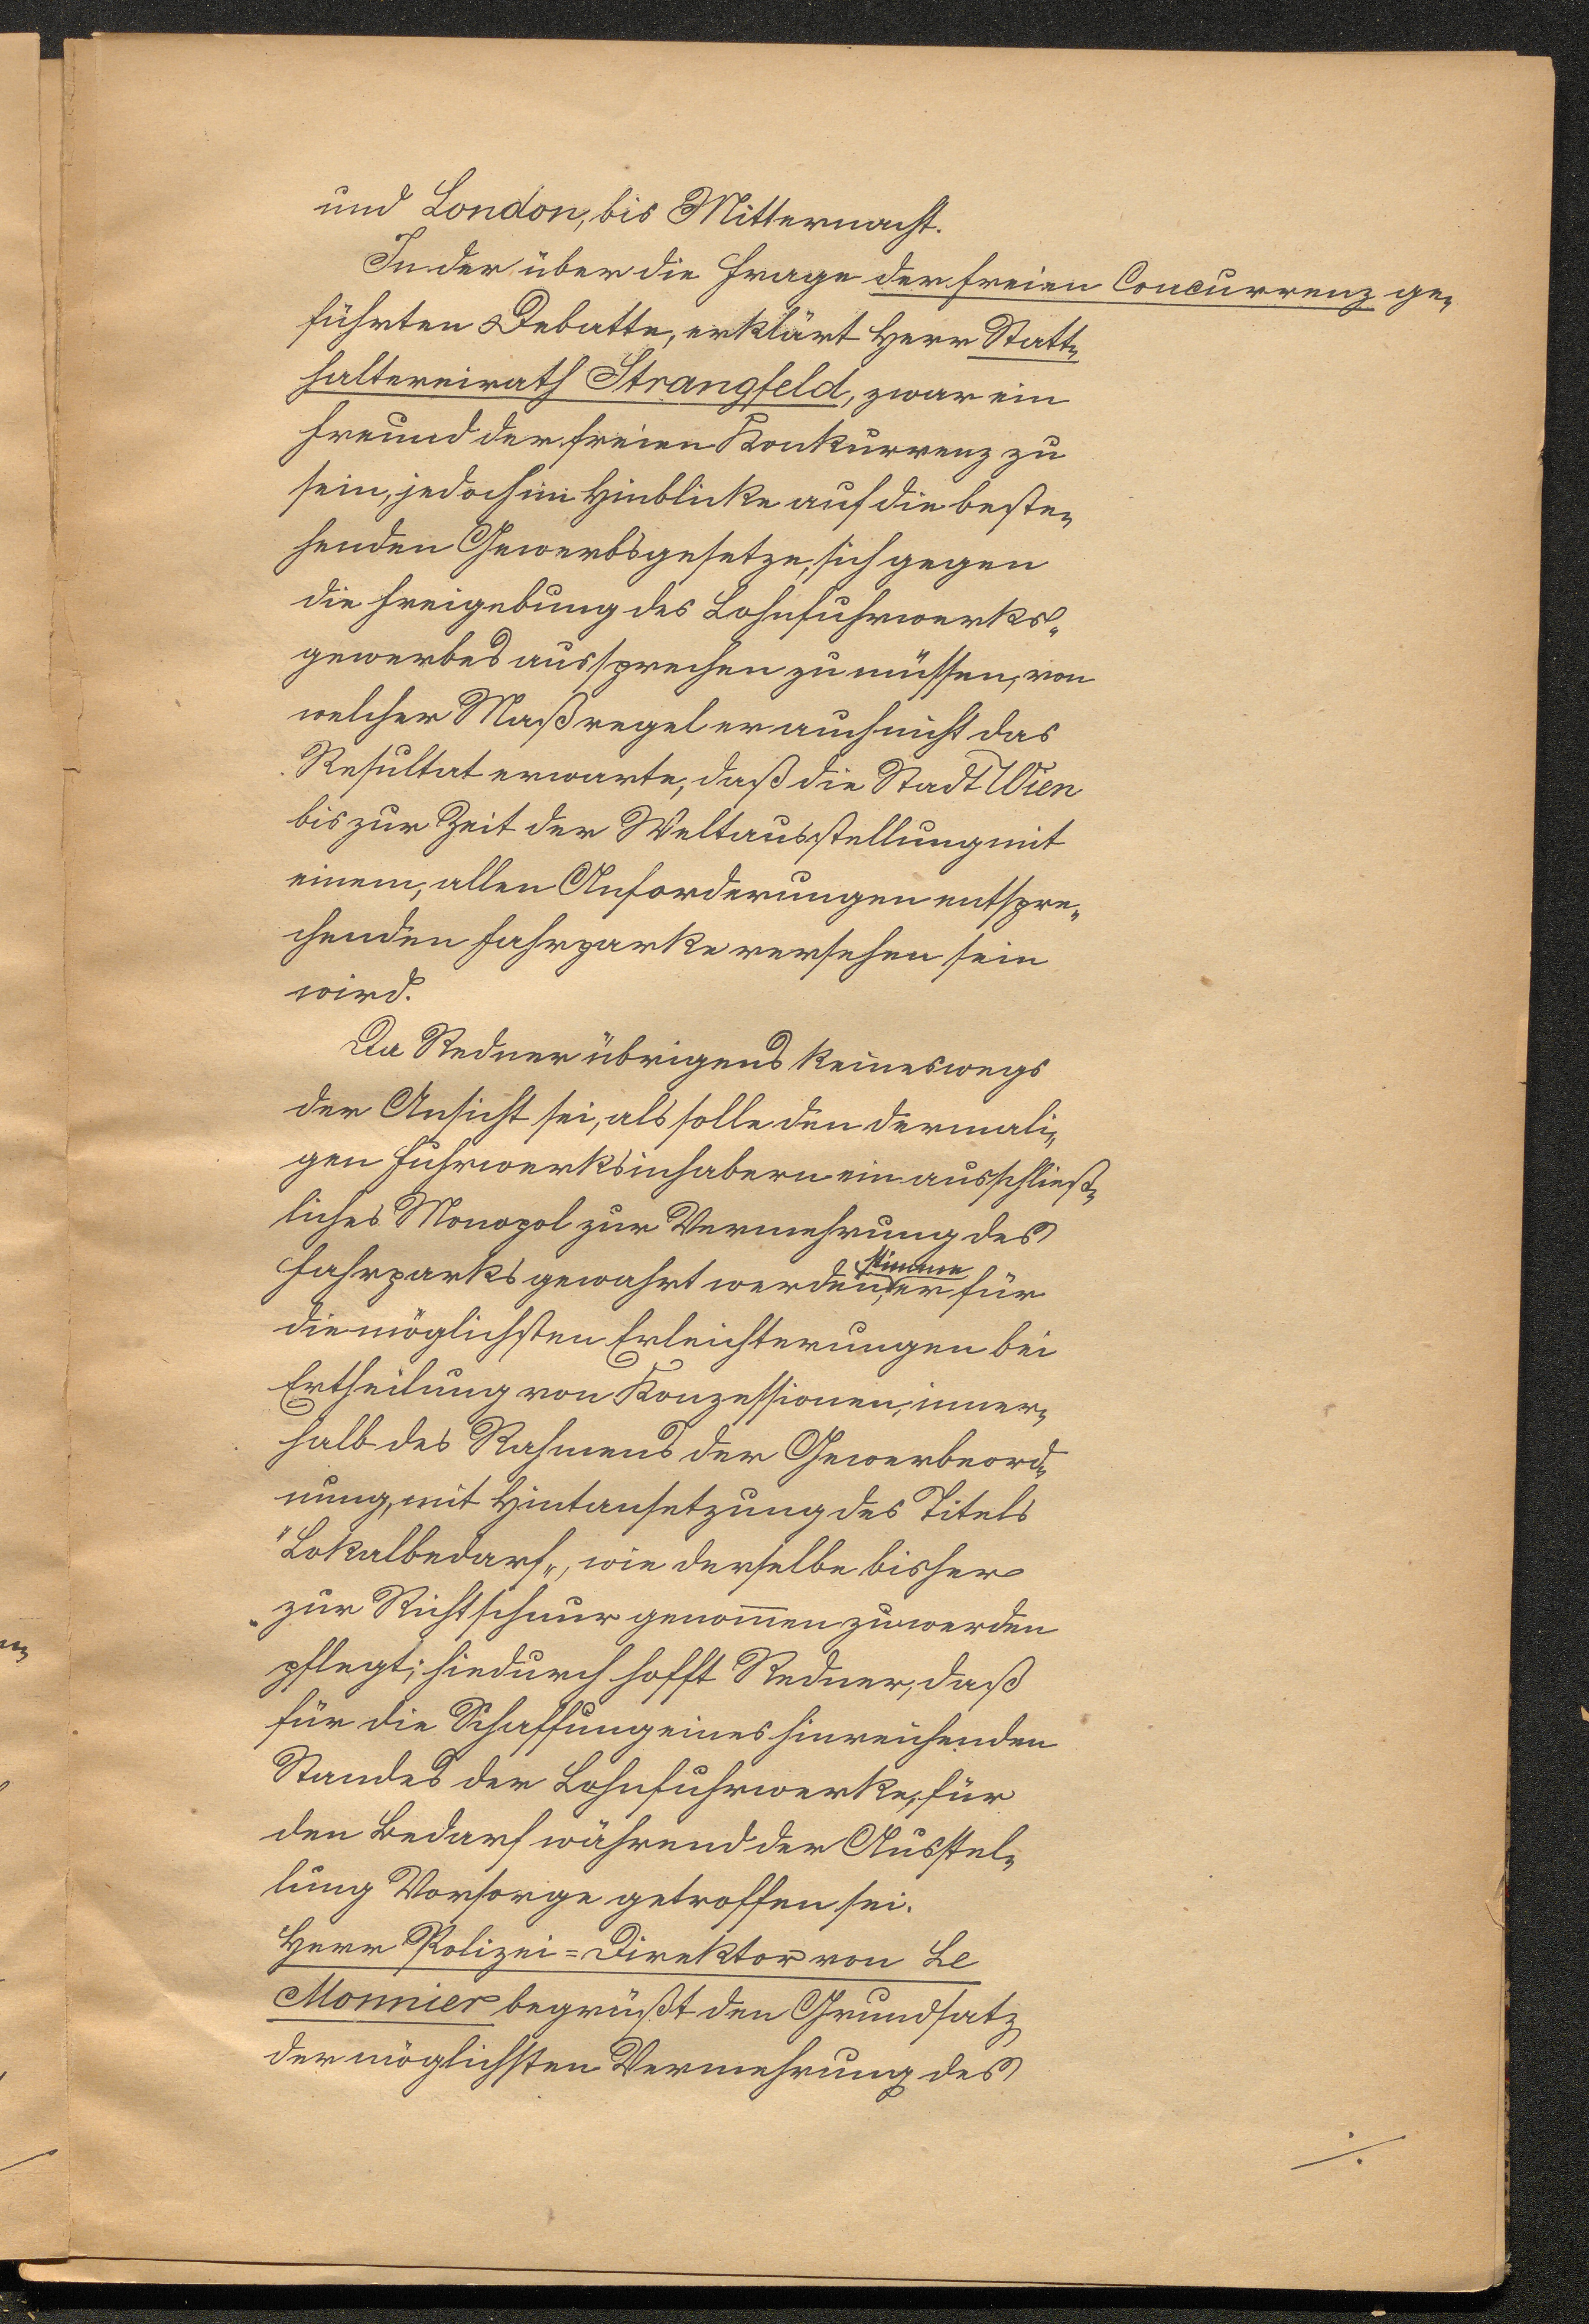 und London, bis Mitternacht.
In der über die Frage der freien Concurrenz ge-
führten Debatte, erklärt Herr Statt-
haltereirath Strangfeld, zwar ein
Freund der freien Konkurrenz zu
sein, jedoch im Hinblicke auf die beste-
henden Gewerbsgesetze, sich gegen
die Freigebung des Lohnfuhrwerks-
gewerbes aussprechen zu müssen, von
welcher Maßregel er auch nicht das
Resultat erwarte, daß die Stadt Wien
bis zur Zeit der Weltausstellung mit
einem, allen Anforderungen entspre-
chenden Fahrparke versehen sein
wird.
Da Redner übrigens keineswegs
der Ansicht sei, als solle den dermali-
gen Fuhrwerksinhabern ein ausschließ-
liches Monopol zur Vermehrung des
Fahrparks gewahrt werden, stimme er für
die möglichsten Erleichterungen bei
Ertheilung von Konzessionen, inner-
halb des Rahmens der Gewerbeord-
nung, mit Hintansetzung des Titels
"Lokalbedarf", wie derselbe bisher
zur Richtschnur genom̅en zu werden
pflegt; hiedurch hofft Redner, daß
für die Schaffung eines hinreichenden
Standes der Lohnfuhrwerke, für
den Bedarf während der Ausstel-
lung Vorsorge getroffen sei.
Herr Polizei=Direktor von Le
Monnier begrüßt den Grundsatz
der möglichsten Vermehrung des
./.